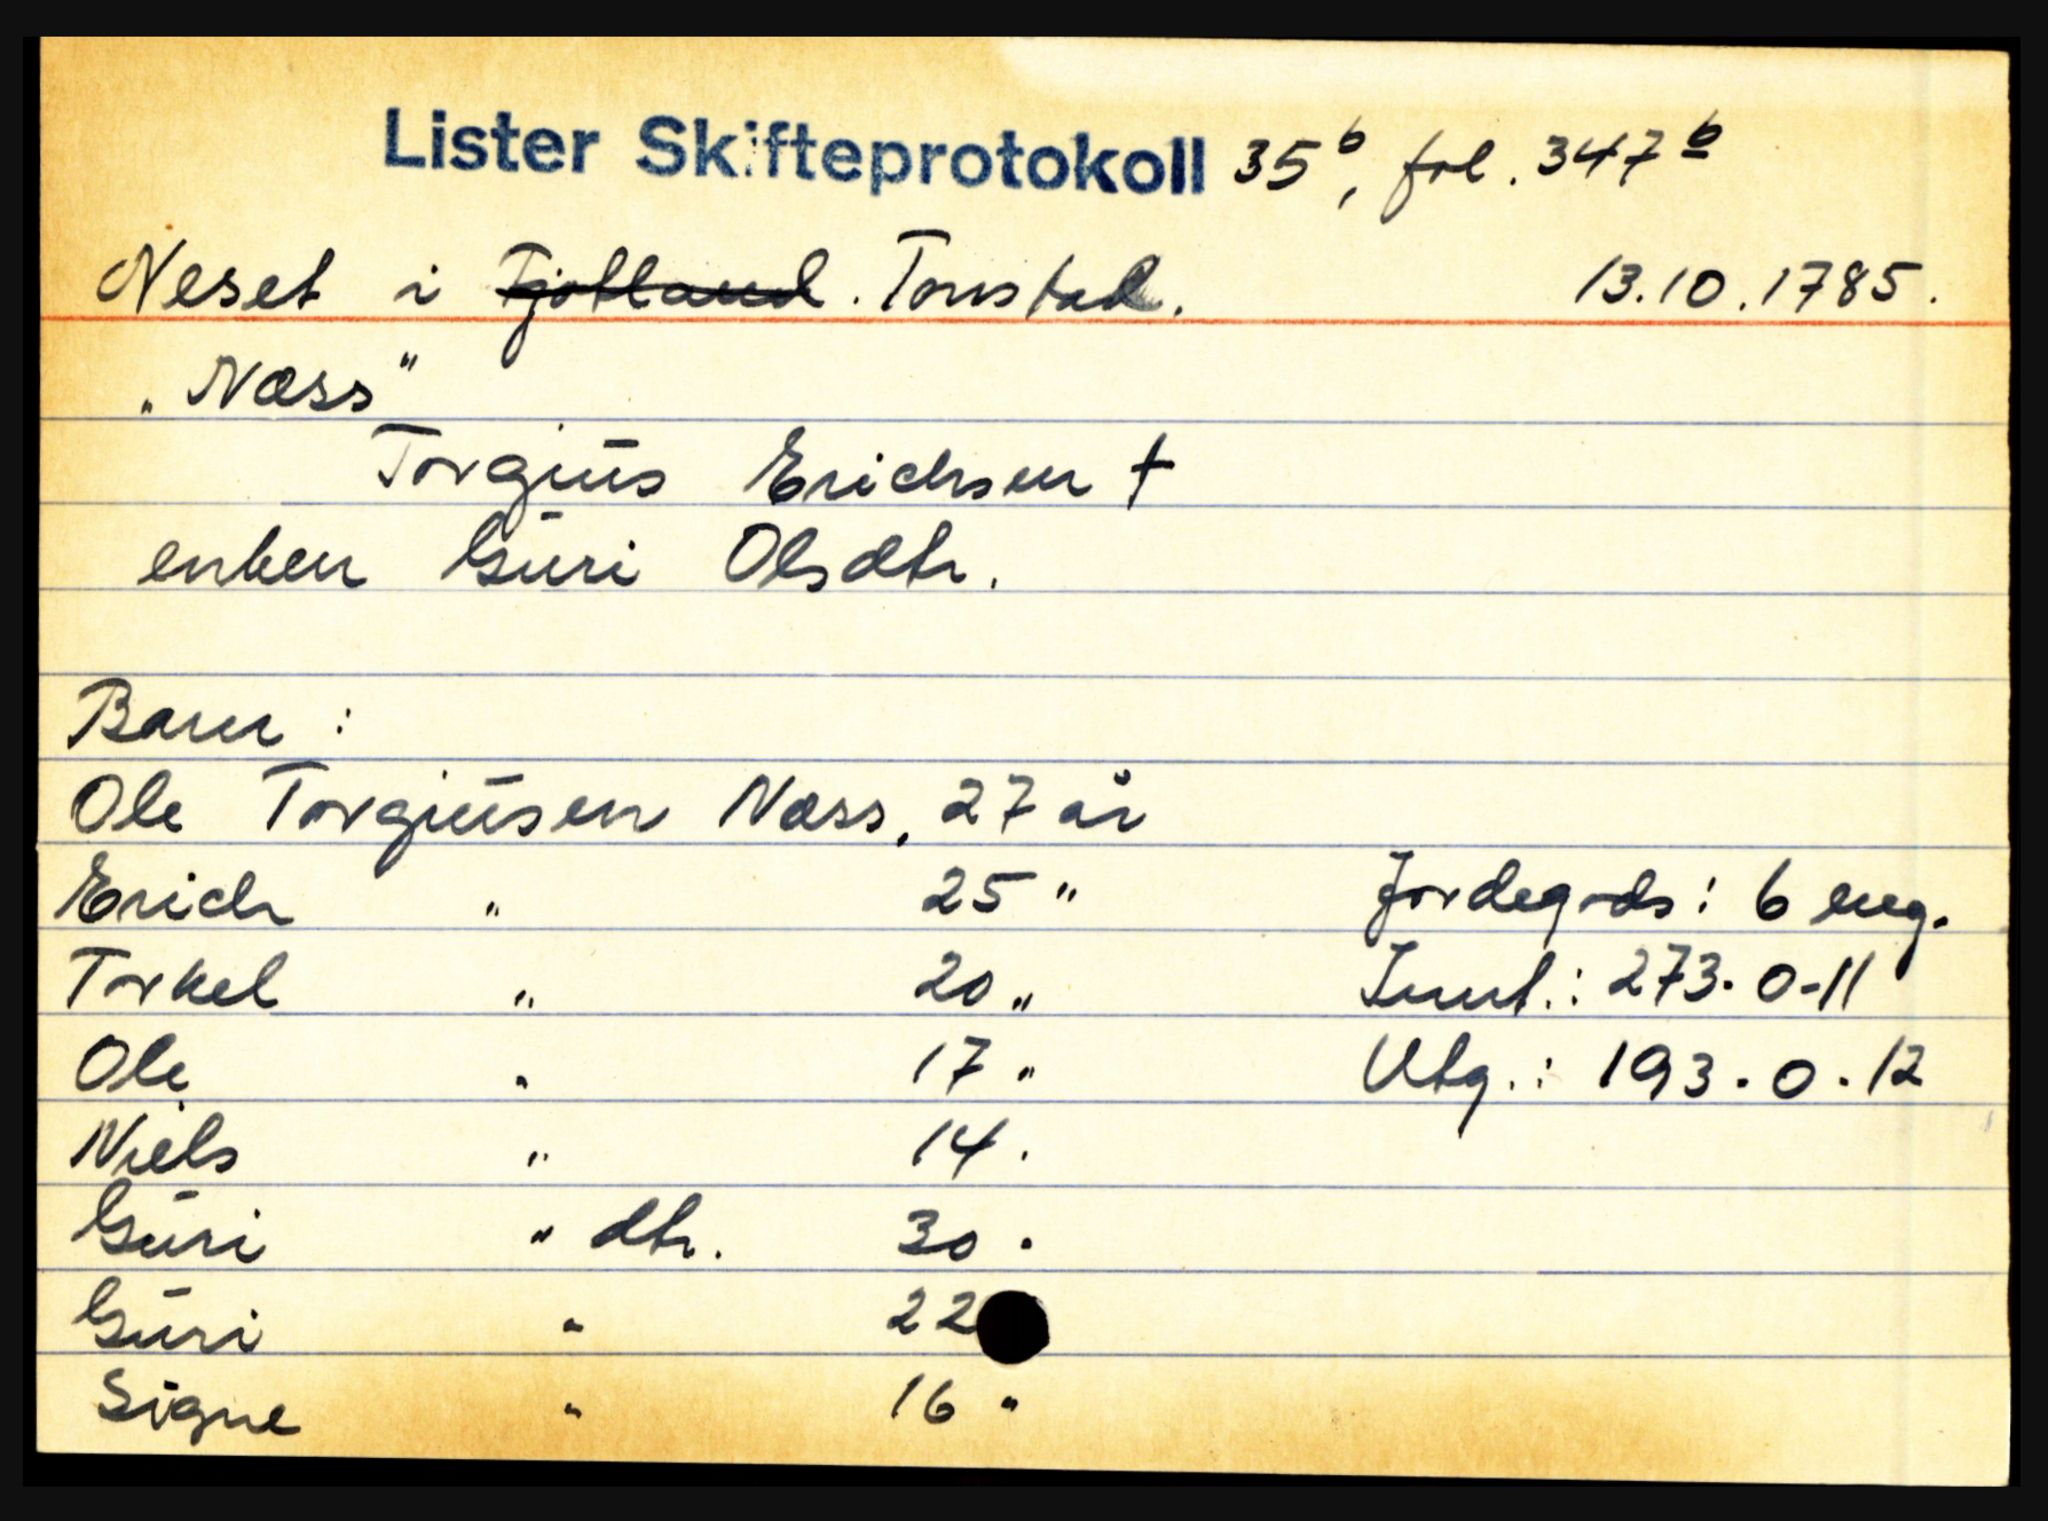 Lister Skifteprotokoll 35b, fol. 347b
Neset i Fjotland. Tonstad. 13.10.1785.
"Næss"
Torgiūs Erichsen †
enken Gūri Olsdtr.
Barn:
Ole Torgiūsen Næss, 27 år
Erich " 25 " Jordegods: 6 eng.
Torkel " 20 " Innt.: 273-0-11
Ole " 17 " Utg.: 193-0-12
Niels " 14 "
Gūri " dtr. 30 "
Gūri " 22
Signe " 16 "